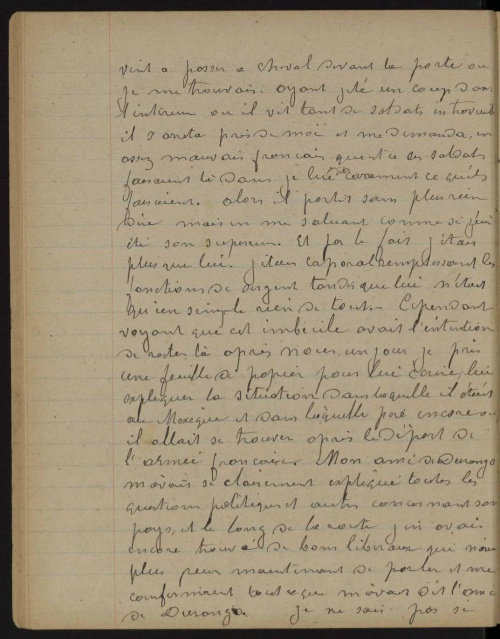 vint a passer a cheval devant la porte ou
je me trouvais. ayant jeté un coup dans
l'interieur ou il vit tant de soldats
il s'arreta pres de moi et me demanda, en
assez mauvais francais que ces soldats
faisaient la dans je lui dis carrement ce qu'ils
faisaient. alors il partit sans plus rien
dire mais en me saluant comme si j'eus
été son superieur. Et par le fait j'étais
plus que lui. j'étais caporal remplissant les
fonctions de sergent tandis que lui n'était
qu'un simple rien du tout. Cependant
voyant que cet imbécile avait l'intention
de rester là après nous, un jour je pris
une feuille de papier pour lui écrire, lui
expliquer la situation dans laquelle il était
au Mexique et dans laquelle pire encore ou
il allait se trouver après le départ de
l'armée francaise. Mon ami de Durango
m'avais si clairement expliqué toutes les
questions politiques et autres concernant son
pays, et le long de la route j'en avais
encore trouvé de bons liberaux qui n'avaient
plus peur maintenant de parler et me
confirmèrent tout ce que m'avait dit l'ami
de Durango. Je ne sais pas si